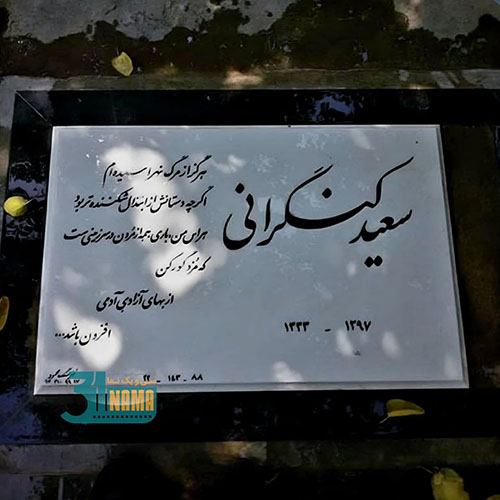 سعید کنگرانی
۱۳۳۳ - ۱۳۹۷
هرگز از مرگ نهراسیده‌ام
اگرچه دستانش از ابتذال شکننده‌تر بود
هراس من، باری، همه از مردن در سرزمینی‌ست
که مُزد گورکن
از بهای آزادی آدمی
افزون باشد...
۲۲ - ۱۴۳ - ۸۸
سی و یک نما
31NAMA